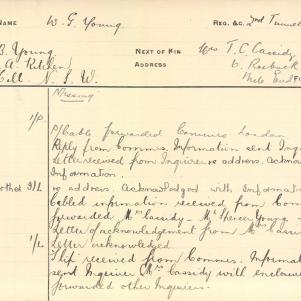 NAME W. G. Young REG. &C. 2nd Tunnel
B Young NEXT OF KIN Mrs T. C. Cassidy
A Kitchen ADDRESS 6. Roebuck
Hill N. S. W. Mile End
Missing
P/Cable forwarded Commrs London
Reply from Commrs. Information sent Inq
Letter received from Inquirer re address. Acknow
Information.
re address. Acknowledged with Informat
Cabled information received from Com
forwarded Mrs Cassidy - Mr Spencer Young -
Letter of acknowledgment from Mrs Cassi
Letter acknowledged.
Slip received from Commrs. Informat
sent Inquirer Mrs Cassidy with enclosu
forwarded other Inquirer.